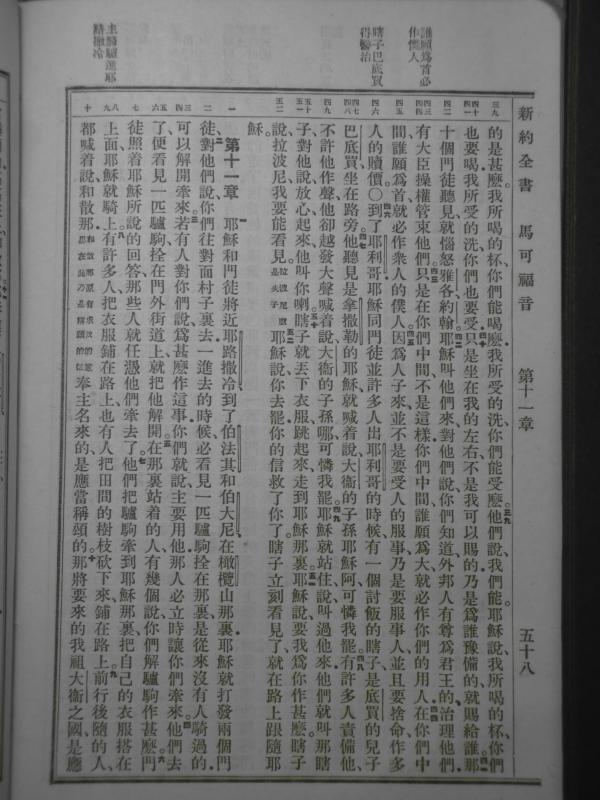 新約全書　馬可福音　第十一章　五十八
誰願爲首必作僕人
瞎子巴底買得醫治
主騎驢進耶路撒冷
三九
四十
四一
四二
四三
四四
四五
四六
四七
四八
四九
五十
五一
五二
一
二
三
四
五
六
七
八
九
十
的是甚麽我所喝的杯你們能喝麽我所受的洗你們能受麽他們說我們能耶穌說我所喝的杯你們
也要喝我所受的洗你們也要受只是坐在我的左右不是我可以賜的乃是爲誰豫備的就賜給誰那
十個門徒聽見就惱怒雅各約翰耶穌叫他們來對他們說你們知道外邦人有尊爲君王的治理他們
有大臣操權管束他們只是在你們中間不是這樣你們中間誰願爲大就必作你們的用人在你們中
間誰願爲首就必作衆人的僕人因爲人子來並不是要受人的服事乃是要服事人並且要捨命作多
人的贖價〇到了耶利哥耶穌同門徒並許多人出耶利哥的時候有一個討飯的瞎子是底買的兒子
巴底買坐在路旁他聽見是拿撒勒的耶穌就喊着說大衞的子孫耶穌阿可憐我罷有許多人責備他
不許他作聲他卻越發大聲喊着說大衞的子孫哪可憐我罷耶穌就站住說叫過他來他們就叫那瞎
子對他說放心起來他叫你喇瞎子就丟下衣服跳起來走到耶穌那裏耶穌說要我爲你作甚麽瞎子
說拉波尼我要能看見拉波尼就是夫子耶穌說你去罷你的信救了你了瞎子立刻看見了就在路上跟隨耶
穌
第十一章　耶穌和門徒將近耶路撒冷到了伯法其和伯大尼在橄欖山那裏耶穌就打發兩個門
徒對他們說你們往對面村子裏去一進去的時候必看見一匹驢駒拴在那裏是從來沒有人騎過的
可以解開牽來若有人對你們說爲甚麽作這事你們就說主要用他那人必立時讓你們牽來他們去
了便看見一匹驢駒拴在門外街道上就把他解開在那裏站着的人有幾個說你們解驢駒作甚麽門
徒照着耶穌所說的回答那些人就任憑他們牽去了他們把驢駒牽到耶穌那裏把自己的衣服搭在
上面耶穌就騎上有許多人把衣服鋪在路上也有人把田間的樹枝砍下來鋪在路上前行後隨的人
都喊着說和散那和散那原有求救的意思在此乃是稱頌的話奉主名來的是應當稱頌的那將要來的我祖大衞之國是應